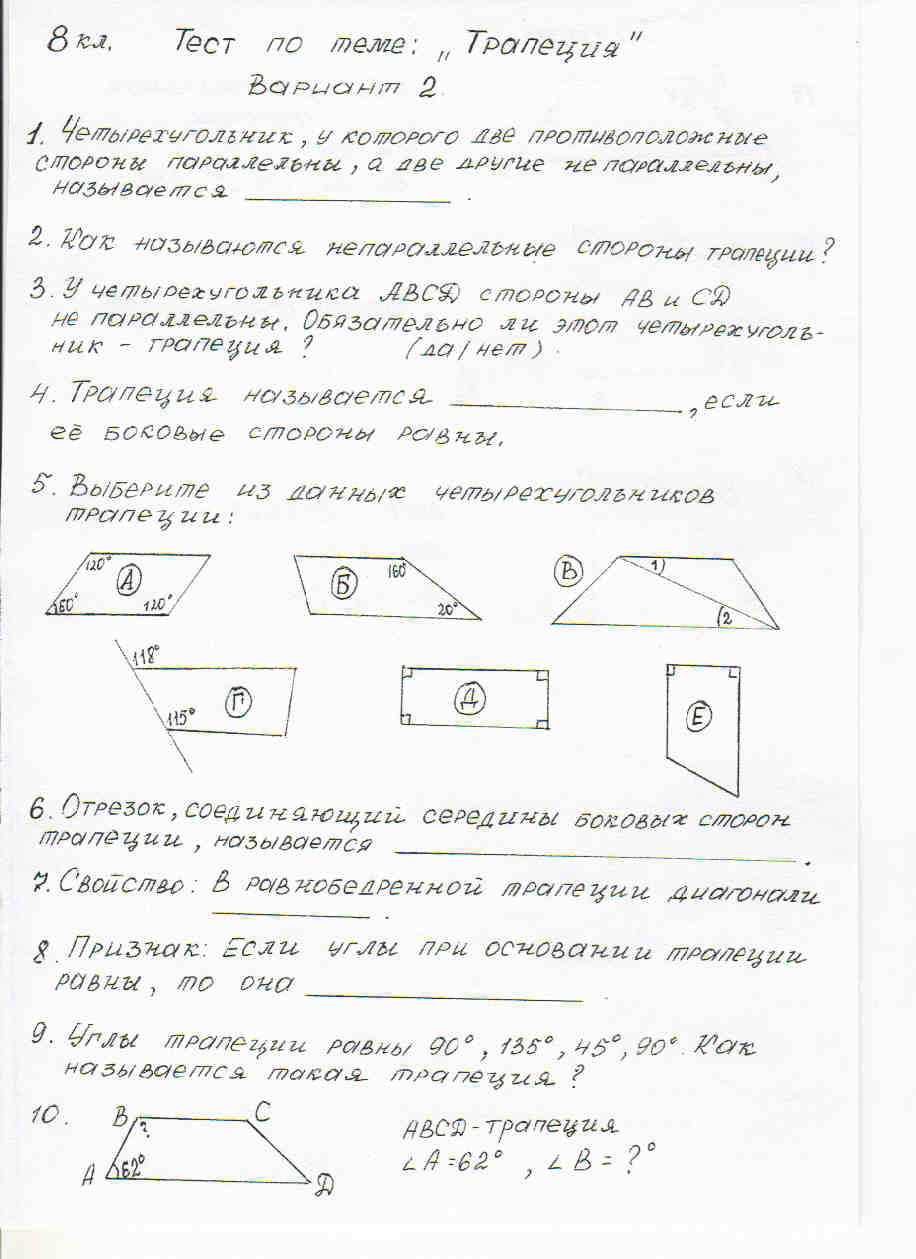 8 кл. Тест по теме: „Трапеция"
Вариант 2.
1. Четырехугольник, у которого две противоположные
стороны параллельны, а две другие не параллельны,
называется ____________ .
2. Как называются непараллельные стороны трапеции?
3. У четырехугольника ABCD стороны AB и CD
не параллельны. Обязательно ли этот четырехуголь-
ник - трапеция? (да/нет).
4. Трапеция называется ____________, если
её боковые стороны равны.
5. Выберите из данных четырехугольников
трапеции:
120° А 60° 120°
Б 160° 20°
В 1) (2
118° 115° Г
Д
Е
6. Отрезок, соединяющий середины боковых сторон
трапеции, называется ____________ .
7. Свойство: В равнобедренной трапеции диагонали
____________ .
8. Признак: Если углы при основании трапеции
равны, то она ____________ .
9. Углы трапеции равны 90°, 135°, 45°, 90°. Как
называется такая трапеция?
10. B C ABCD - трапеция
? A 62° D ∠A = 62°, ∠B = ?°